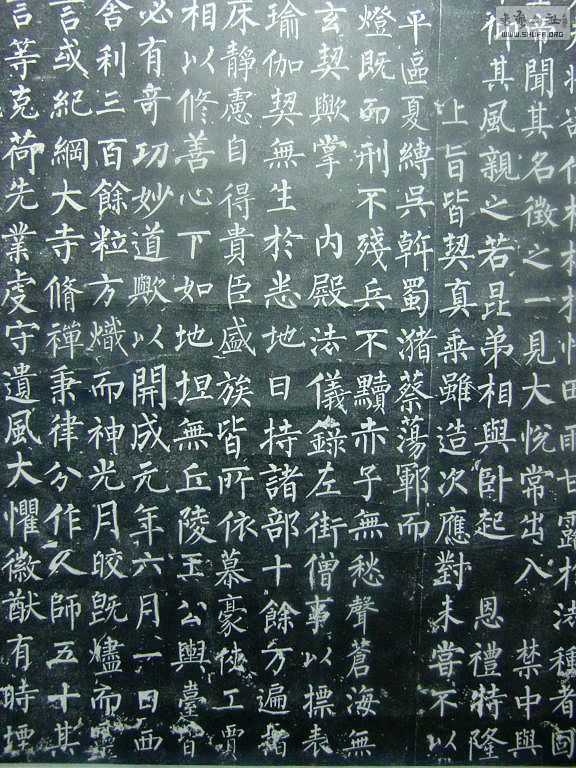 夫將欲伐株杌於情田雨甘露於法種者固
帝聞其名徵之一見大悅常出入 禁中與
仰其風親之若昆弟相與臥起 恩禮特隆
上旨皆契真乘雖造次應對未嘗不以
平區夏縛吳斡蜀瀦蔡蕩鄆而
燈既而刑不殘兵不黷赤子無愁聲蒼海無
玄契歟掌 內殿法儀錄左街僧事以標表
瑜伽契無生於悉地日持諸部十餘万遍指
床靜慮自得貴臣盛族皆所依慕豪俠工賈
相以修善心下如地坦無丘陵王公輿臺皆
必有奇功妙道歟以開成元年六月一日西
舍利三百餘粒方熾而神光月皎既燼而靈
言或紀綱大寺脩禪秉律分作人師五十其
言等克荷先業虔守遺風大懼徽猷有時堙
书艺公社
WWW.SHUFA.ORG